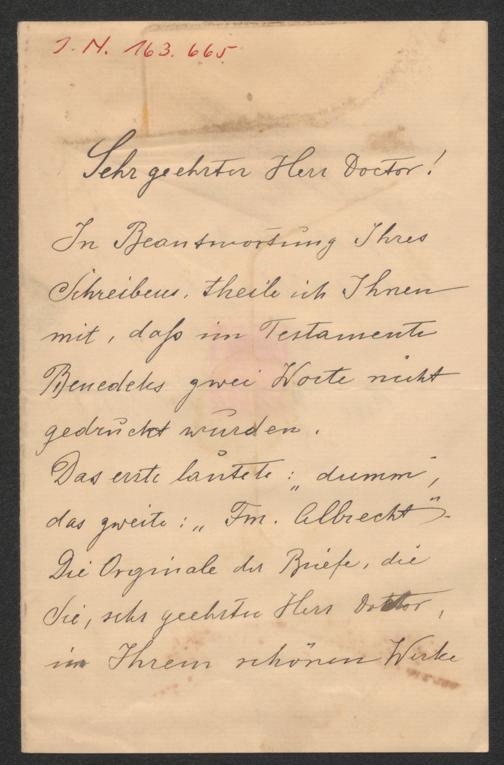 I. N. 163.665
Sehr geehrter Herr Doctor!
In Beantwortung Ihres
Schreibens, theile ich Ihnen
mit, daß im Testamente
Benedeks zwei Worte nicht
gedruckt wurden.
Das erste lautete: „dumm“,
das zweite: „Fm. Albrecht“.
Die Originale der Briefe, die
Sie, sehr geehrter Herr Doctor,
in Ihrem schönen Werke